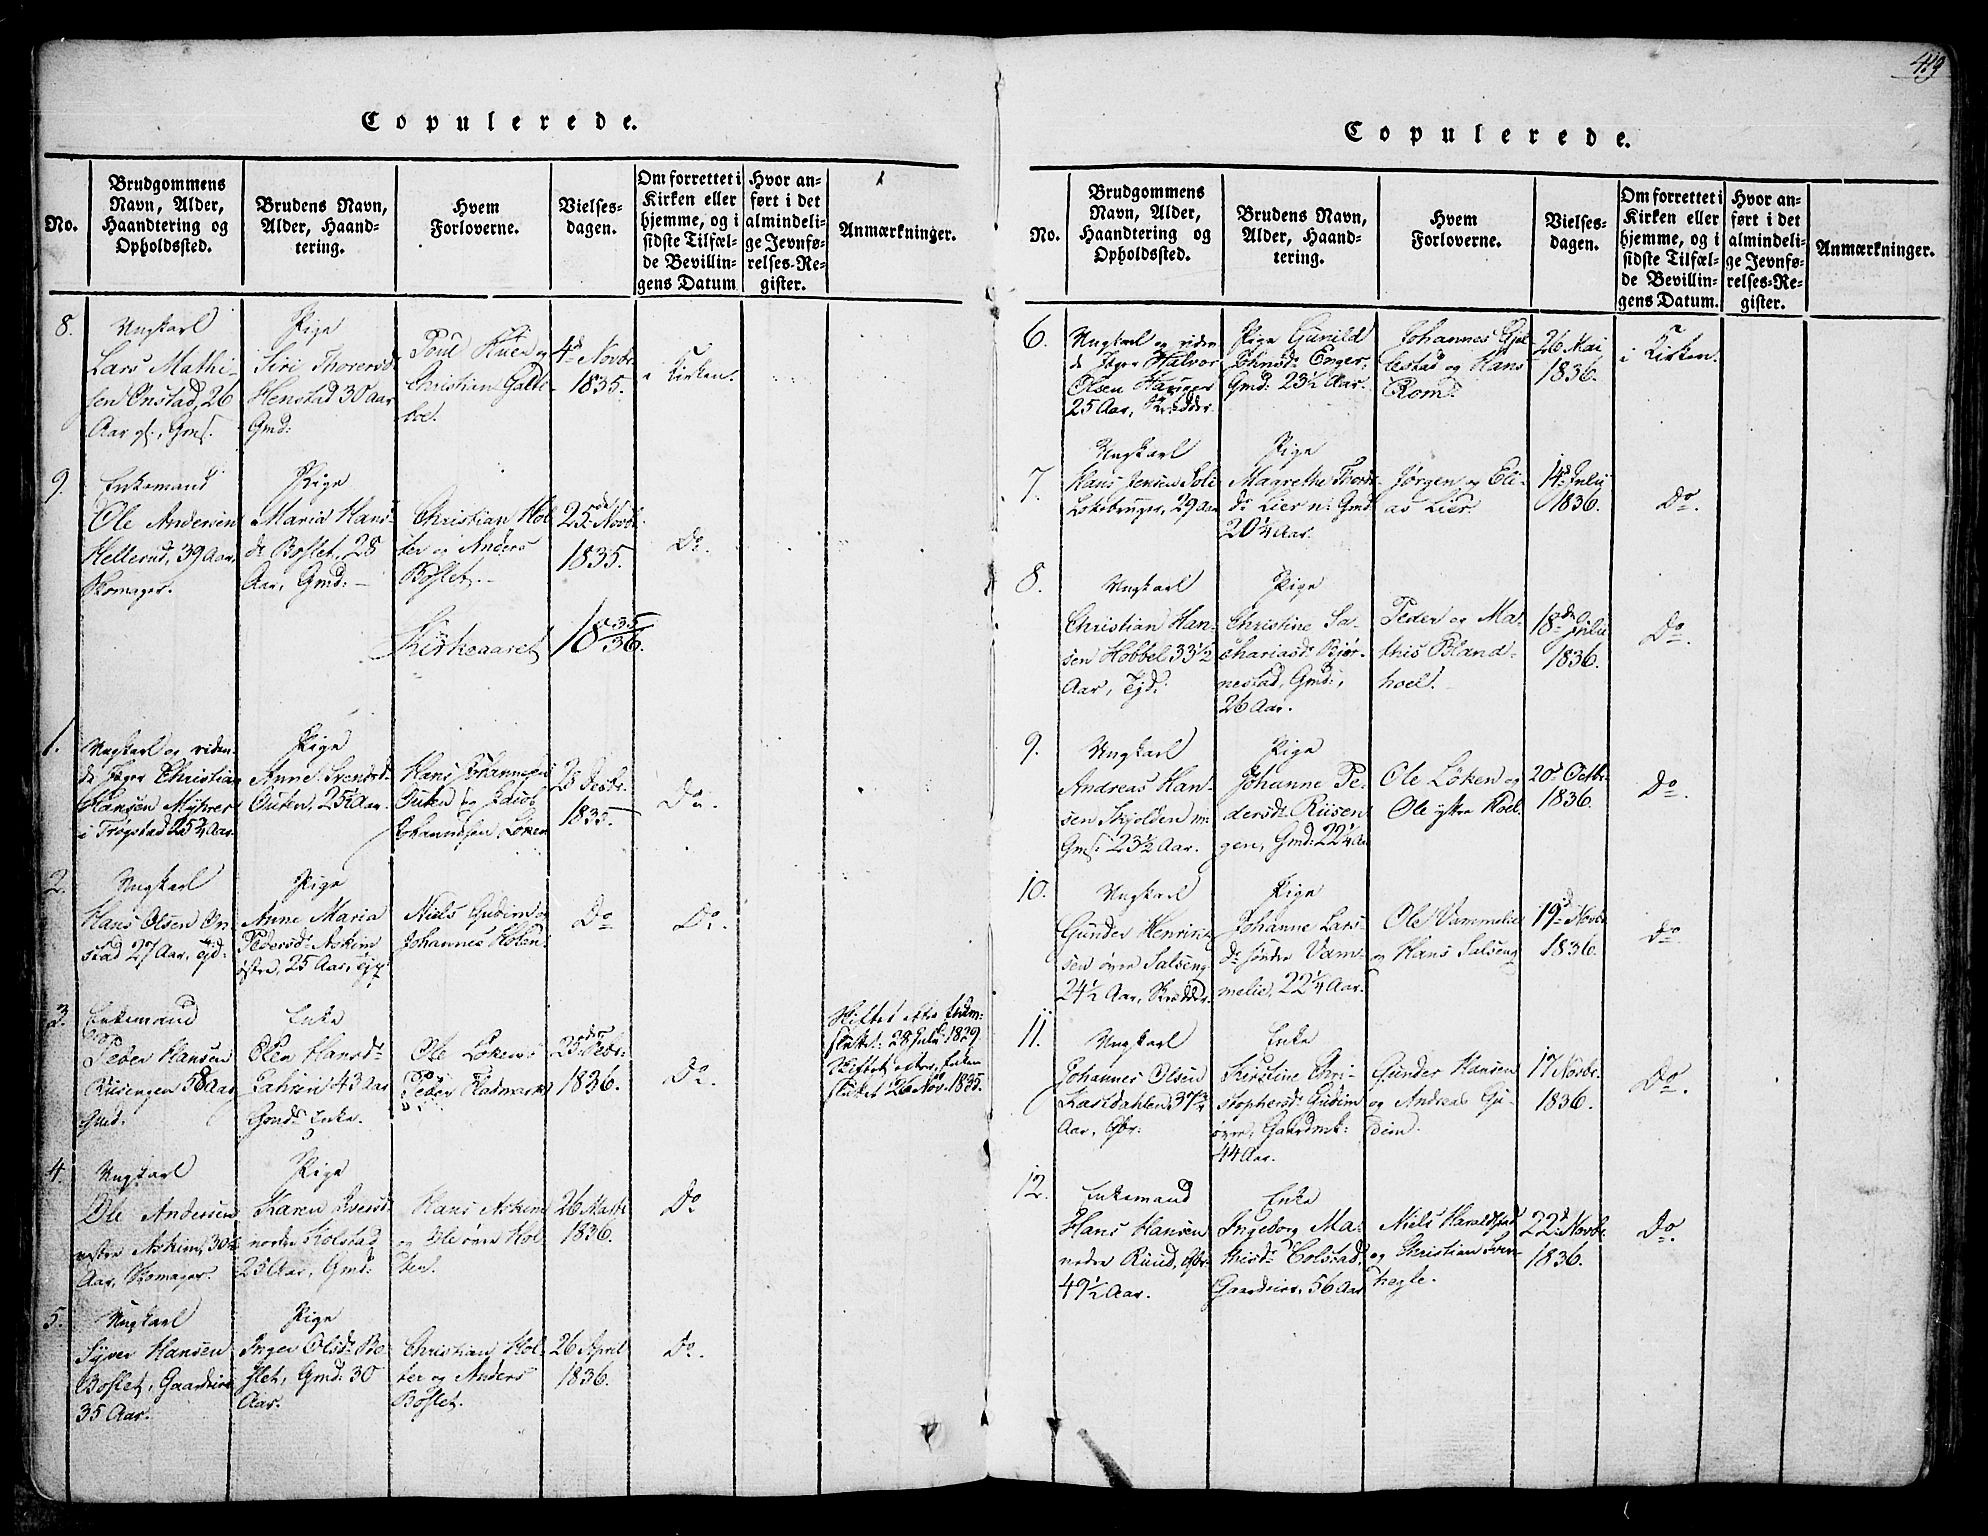 419
Copulerede.
No.
Brudgommens
Navn, Alder,
Haandtering og
Opholdssted.
Brudens Navn,
Alder, Haand-
tering.
Hvem
Forloverne.
Vielses-
dagen.
Om forrettet i
Kirken eller
hjemme, og i
sidste Tilfæl-
de Bevillin-
gens Datum
Hvor an-
ført i det
almindeli-
ge Jevnfø-
relses-Re-
gister.
Anmærkninger.
8.
Ungkarl
Lars Mathi-
sen Onstad, 26
Aar gl., Gms.
Pige
Siri Thorersd
Henstad 30 Aar
Gmd:
Poul Huer og
Christian Galte-
boe.
4de Novbr
1835.
i Kirken.
9.
Enkemand
Ole Andersen
Hellerud, 39 Aar,
Skomager.
Pige
Maria Hans-
dr Boslet, 28
Aar, Gmd: –
Christian Hol-
ter og Anders
Boslet. –
25de Novb.
1835.
Do.
Kirkeaaret 1835/36.
1.
Ungkarl og riden-
de Jæger Christian
Hansen Myhrer
i Trøgstad 25¼ Aar.
Pige
Anne Svendsd
Outen, 25 Aar.
Hans Johannesen
og
Løken
28 Decbr.
1835.
Do.
2.
Ungkarl
Hans Olsen On-
stad 27 Aar, ejd:
Pige
Anne Maria
Pedersdr Askim
østre, 25 Aar,
Niels Gudim og
Johannes Holen
Do
Do.
3.
Enkemand
Peder Hansen
Riisengen 58 Aar
Gmd.
Enke
Olea Hansdr
43 Aar
Gmds Enke.
Ole Løken og
Peder Kladmark
25de Febr.
1836.
Do.
Skiftet efter Enkem-
sluttet 28 Juli 1829.
Skiftet efter Enken
sluttet 26 Nov. 1835.
4.
Ungkarl
Ole Andersen
østre Askim, 30½
Aar, Skomager.
Pige
Karen Iversd.
nordre Kolstad
25 Aar, Gmd:
Hans Askim
og Ole øvre Kol-
26 Marti
1836.
Do
5.
Ungkarl
Syver Hansen
Boslet, Gaardeier
35 Aar.
Pige
Inger Olsdr Bo-
slet, Gmd: 30
Aar.
Christian Hol-
ter og Anders
Boslet.
26 April
1836.
Do.
Copulerede.
No.
Brudgommens
Navn, Alder,
Haandtering og
Opholdssted.
Brudens Navn,
Alder, Haand-
tering.
Hvem
Forloverne.
Vielses-
dagen.
Om forrettet i
Kirken eller
hjemme, og i
sidste Tilfæl-
de Bevillin-
gens Datum.
Hvor an-
ført i det
almindeli-
ge Jevnfø-
relses-Re-
gister.
Anmærkninger.
6.
Ungkarl og riden
de Jæger Halvor
Olsen Haugen
25 Aar, Skrædder.
Pige Gunild
Johnsdr Enger-
Gmd. 23½ Aar.
Johannes Gjel-
lestad og Hans
Rom.
26 Mai
1836.
i Kirken.
7.
Ungkarl
Hans Jensen Solie
Leilobruger, 29 Aar
Pige
Maarethe Thord-
dr Lier n: Gmd
20¼ Aar.
Jørgen og Eli-
as Lier
14de Julii
1836.
Do.
8.
Ungkarl
Christian Han-
sen Hobbel 33½
Aar, Ejd.
Pige
Christine Za-
chariasdr Bjør-
nestad, Gmd:,
26 Aar.
Peder og Ma-
this Bland-
hoel.
18de Julii
1836.
Do.
9.
Ungkarl
Andreas Han-
sen Skjolden n:
Gms: 23½ Aar.
Pige
Johanne Pe-
dersdr Riisen
gen, Gmd: 22¼ Aar
Ole Løken og
Ole østre Hoel
20de Octbr.
1836.
Do.
10.
Ungkarl
Gunder Henrik-
sen øvre Salseng
24½ Aar, Skrædder.
Pige
Johanne Lars-
dr søndre Vam-
melie, 22¼ Aar.
Ole Vammelie
og Hans Salseng
19de Novbr
1836.
Do.
11.
Ungkarl
Johannes Olsen
Kasldahlen, 37¾
Aar, Gbr:
Enke
Kirstine Chri-
stophersdr Gudim
øvre, Gaardmk:
44 Aar.
Gunder Hansen
og Andreas Gu-
dim.
17 Novbr.
1836.
Do.
12.
Enkemand
Hans Hansen
nedre Ruud, Gbr:
49½ Aar.
Enke
Ingeborg Ma-
thisdr Colstad,
Gaardeier, 56 Aar
Niels Haraldstad
og Christian
hegle.
22de Novbr.
1836.
Do.